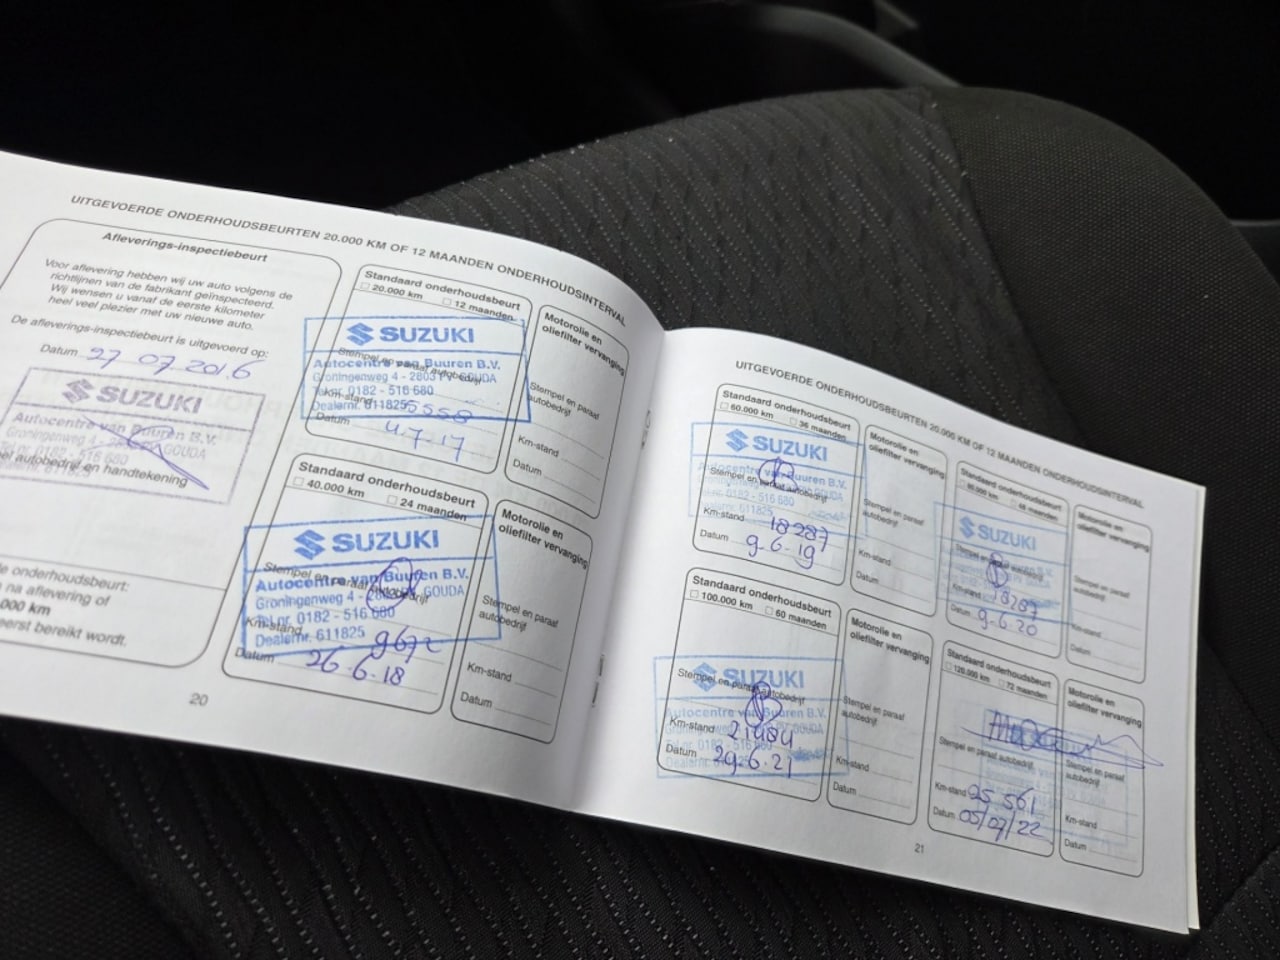 UITGEVOERDE ONDERHOUDSBEURTEN 20.000 KM OF 12 MAANDEN ONDERHOUDSINTERVAL
Afleverings-inspectiebeurt
Voor aflevering hebben wij uw auto volgens de
richtlijnen van de fabrikant geïnspecteerd.
Wij wensen u vanaf de eerste kilometer
heel veel plezier met uw nieuwe auto.
De afleverings-inspectiebeurt is uitgevoerd op:
Datum 27 07 2016
SUZUKI
Autocentre van Buuren B.V.
Groningenweg 4 - GOUDA
0182 - 516 680
el autobedrijf en handtekening
e onderhoudsbeurt:
na aflevering of
000 km
eerst bereikt wordt.
Standaard onderhoudsbeurt
20.000 km 12 maanden
SUZUKI
Stempel en paraaf autobedrijf
Autocentre van Buuren B.V.
Groningenweg 4 - 2803 PV GOUDA
Tel.nr. 0182 - 516 680
Km-stand 5558
Dealernr. 611825
Datum 4.7.17
Motorolie en
oliefilter vervanging
Stempel en paraaf
autobedrijf
Km-stand
Datum
Standaard onderhoudsbeurt
40.000 km 24 maanden
SUZUKI
Stempel en paraaf autobedrijf
Autocentre van Buuren B.V.
Groningenweg 4 - GOUDA
Tel.nr. 0182 - 516 680
Km-stand 9672
Dealernr. 611825
Datum 26.6.18
Motorolie en
oliefilter vervanging
Stempel en paraaf
autobedrijf
Km-stand
Datum
20
UITGEVOERDE ONDERHOUDSBEURTEN 20.000 KM OF 12 MAANDEN ONDERHOUDSINTERVAL
Standaard onderhoudsbeurt
60.000 km 36 maanden
SUZUKI
Autocentre van Buuren B.V.
Stempel en paraaf autobedrijf
GOUDA
Tel.nr. 0182 - 516 680
Dealernr. 611825
Km-stand 18287
Datum 9.6.19
Motorolie en
oliefilter vervanging
Stempel en paraaf
autobedrijf
Km-stand
Datum
Standaard onderhoudsbeurt
80.000 km 48 maanden
SUZUKI
Stempel en paraaf autobedrijf
Km-stand 18287
Datum 9.6.20
Motorolie en
oliefilter vervanging
Stempel en paraaf
autobedrijf
Km-stand
Datum
Standaard onderhoudsbeurt
100.000 km 60 maanden
SUZUKI
Stempel en paraaf autobedrijf
Autocentre van Buuren B.V.
GOUDA
Km-stand 21484
Tel.nr. 0182 - 516 680
Datum 29.6.21
Dealernr.
Motorolie en
oliefilter vervanging
Stempel en paraaf
autobedrijf
Km-stand
Datum
Standaard onderhoudsbeurt
120.000 km 72 maanden
Stempel en paraaf autobedrijf
Km-stand 25 561
Datum 05/07/22
Motorolie en
oliefilter vervanging
Stempel en paraaf
autobedrijf
Km-stand
Datum
21